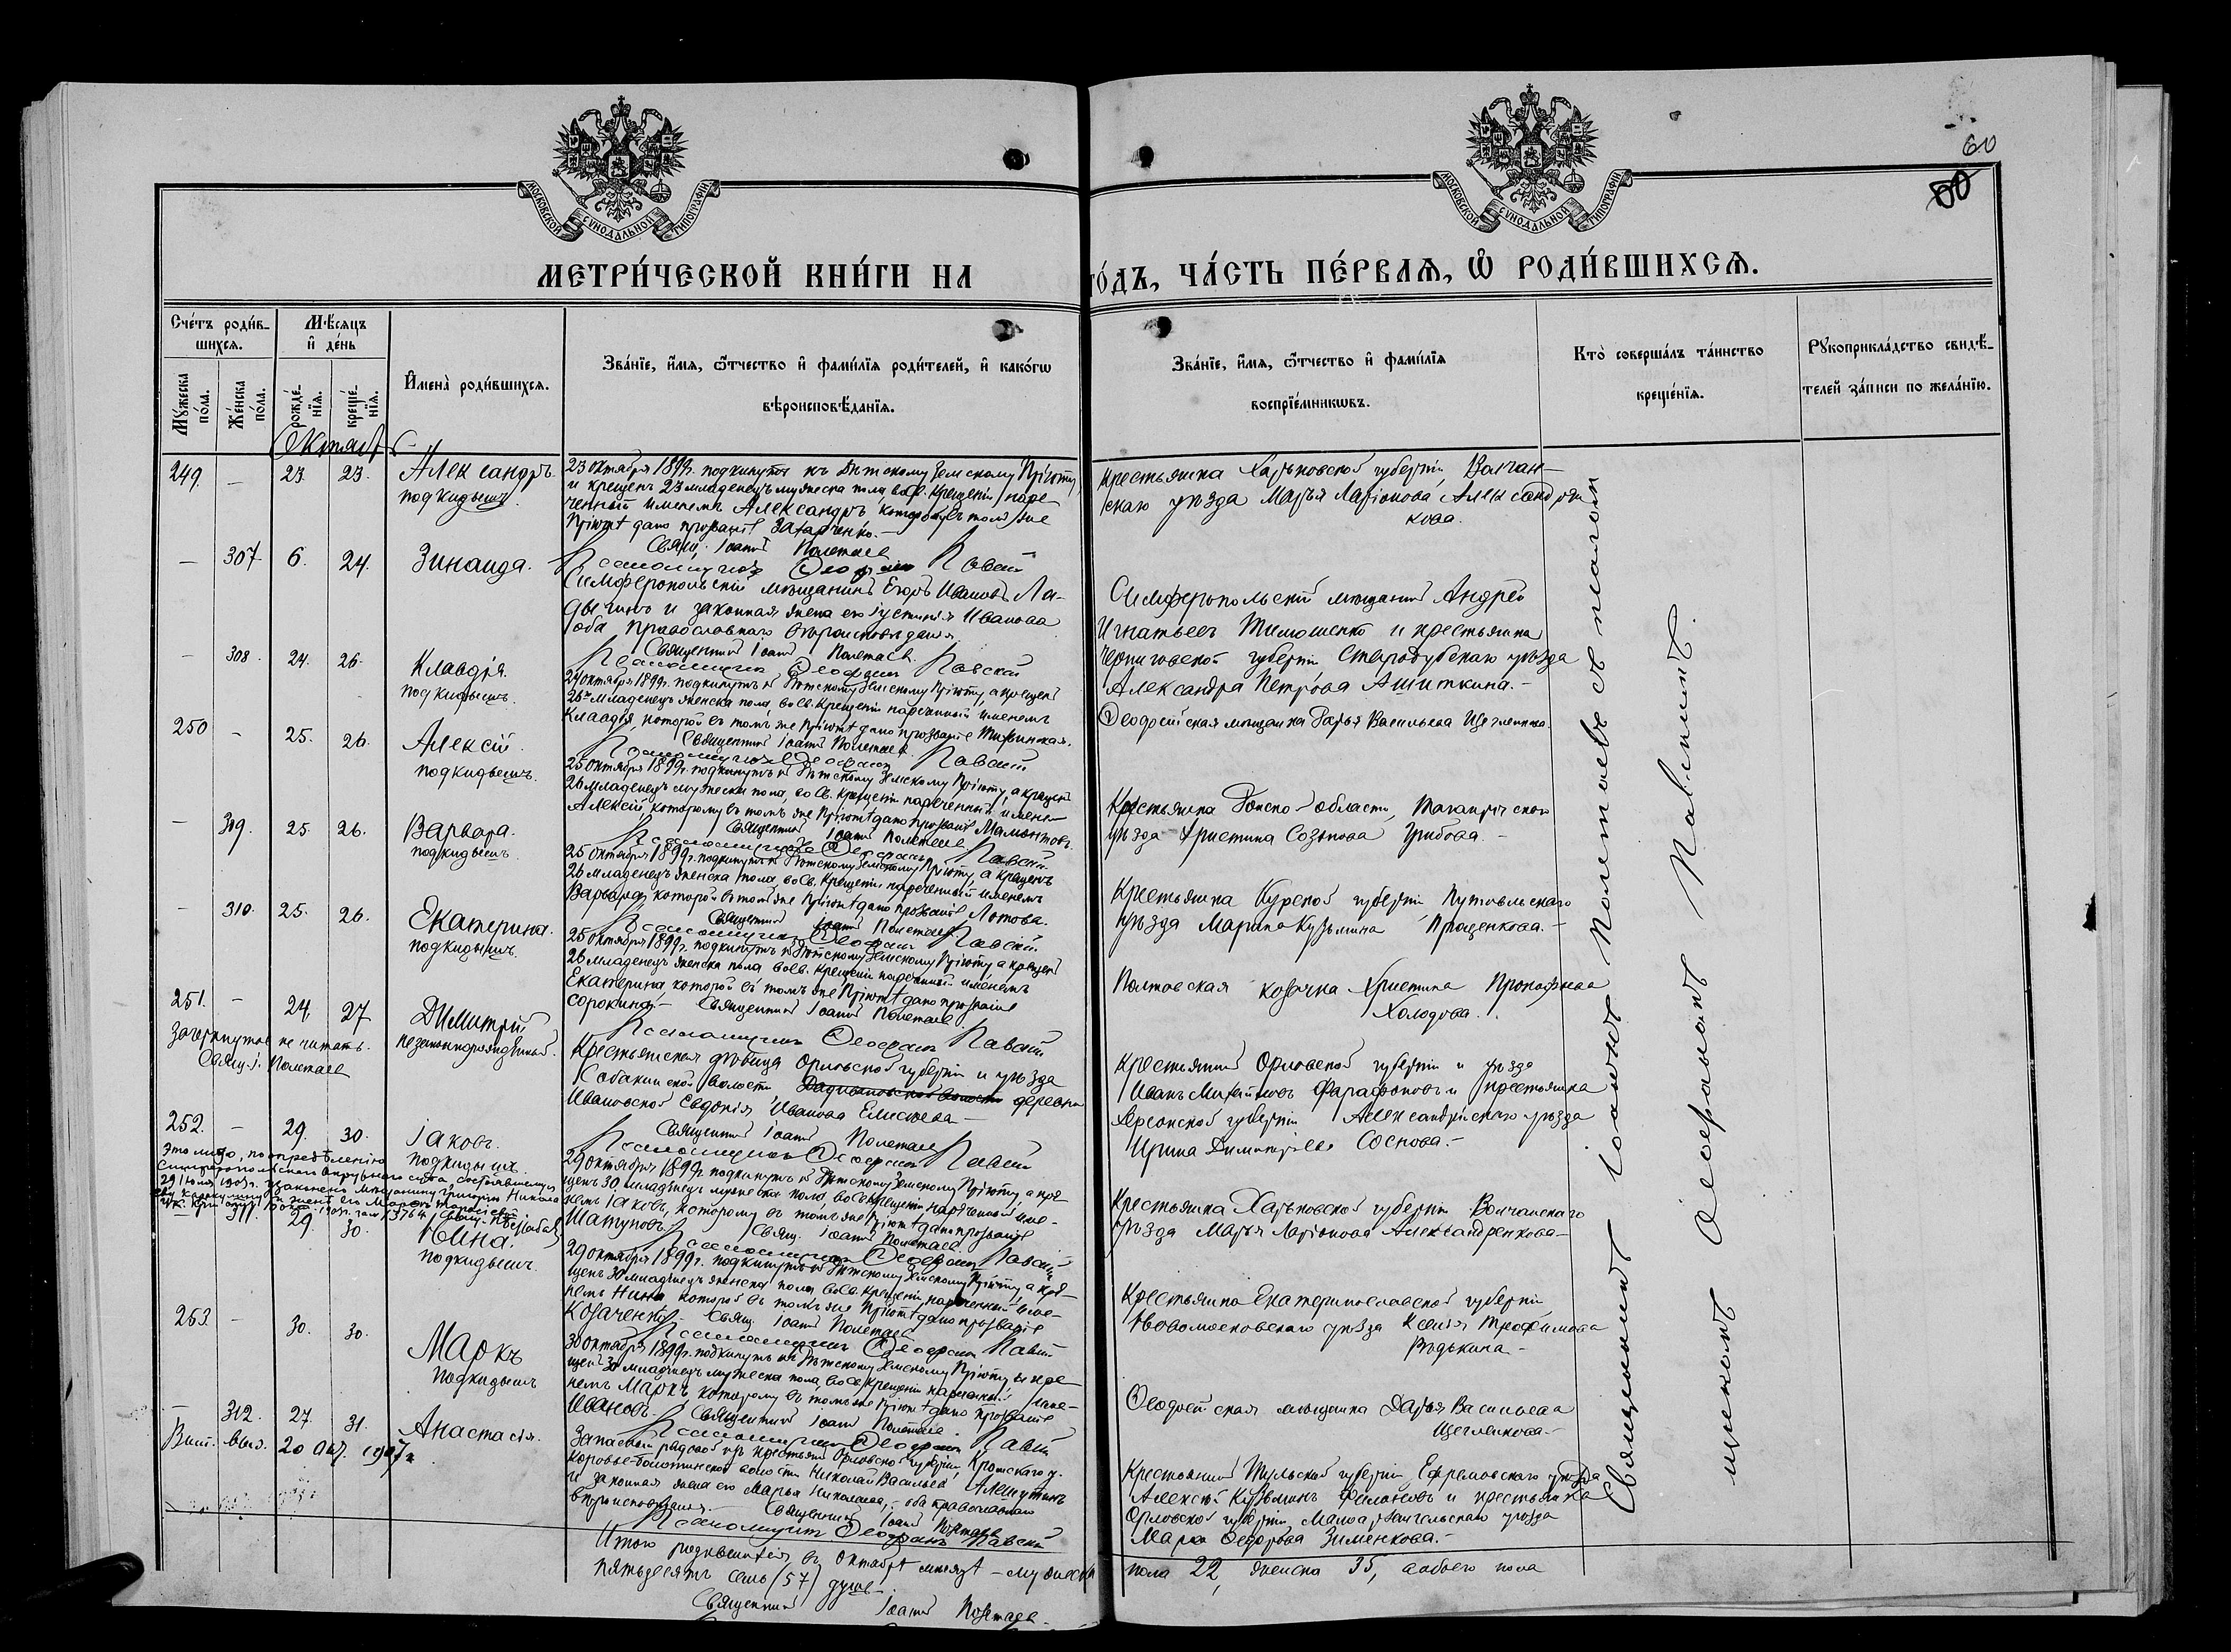 60
МОСКОВСКОЙ СѴНОДАЛЬНОЙ ТИПОГРАФІИ
МОСКОВСКОЙ СѴНОДАЛЬНОЙ ТИПОГРАФІИ
МЕТРИ́ЧЕСКОЙ КНИ́ГИ НА
ГО́ДЪ, ЧА́СТЬ ПЕ́РВАѦ, Ѽ РОДИ́ВШИХСѦ.
Сче́тъ роди́в-
шихсѧ.
Мѣ́сѧцъ
и҆ де́нь
Мꙋ́жеска
по́ла.
Же́нска
по́ла.
рожде́-
нїѧ.
креще́-
нїѧ.
И҆мена̀ роди́вшихсѧ.
Зва́нїе, и҆́мѧ, ѻ҆́тчество и҆ фами́лїѧ роди́телей, и҆ како́гѡ
вѣроисповѣ́данїѧ.
Зва́нїе, и҆́мѧ, ѻ҆́тчество и҆ фами́лїѧ
воспрїе́мникѡвъ.
Кто̀ соверша́лъ та́инство
креще́нїѧ.
Рꙋкоприкла́дство свидѣ́-
телей за́писи по жела́нїю.
249. — 23. 23. Александръ
подкидышъ.
23 октября 1899 г. подкинутъ къ Дѣтскому Земскому Пріюту,
и крещенъ 23 младенецъ мужеска пола, во Св. Крещеніи наре-
ченный именемъ Александръ, которому въ томъ же
Пріютѣ дано прозваніе Захарченко.—
Свящ. Іоаннъ Полетаевъ
Псаломщикъ Ѳеофанъ Павскій
Крестьянка Харьковской губерніи, Волчан-
скаго уѣзда Марья Ларіонова Александрен-
кова.
— 307. 6. 24. Зинаида.
Симферопольскій мѣщанинъ Егоръ Ивановъ Ла-
дыгинъ и законная жена его Іустинія Иванова
оба православнаго вѣроисповѣданія
Священникъ Іоаннъ Полетаевъ
Псаломщикъ Ѳеофанъ Павскій
Симферопольскій мѣщанинъ Андрей
Игнатьевъ Тимошенко и крестьянка
Черниговской губерніи Стародубскаго уѣзда
Александра Петрова Ашиткина.—
— 308. 24. 26. Клавдія.
подкидышъ.
24 октября 1899 г. подкинутъ къ Дѣтскому Земскому Пріюту, а крещенъ
26 младенецъ женска пола, во св. Крещеніи нареченный именемъ
Клавдія, которой въ томъ же Пріютѣ дано прозваніе
Священникъ Іоаннъ Полетаевъ
Псаломщикъ Ѳеофанъ Павскій
Ѳеодосійская мѣщанка Дарья Васильева Щегленкова.
250 — 25. 26. Алексій.
подкидышъ.
25 октября 1899 г. подкинутъ къ Дѣтскому Земскому Пріюту, а крещенъ
26 младенецъ мужеска пола, во Св. Крещеніи нареченный именемъ
Алексій, которому въ томъ же Пріютѣ дано прозваніе Мамонтовъ.
Священникъ Іоаннъ Полетаевъ
Псаломщикъ Ѳеофанъ Павскій
Крестьянка Донской области, Таганрогскаго
уѣзда Христина Созонова Грибова.—
— 309. 25. 26. Варвара.
подкидышъ.
25 октября 1899 г. подкинутъ къ Дѣтскому Земскому Пріюту, а крещенъ
26 младенецъ женска пола, во Св. Крещеніи нареченный именемъ
Варвара, которой въ томъ же Пріютѣ дано прозваніе Лотова.
Священникъ Іоаннъ Полетаевъ
Псаломщикъ Ѳеофанъ Павскій
Крестьянка Курской губерніи Путивльскаго
уѣзда Марина Кузьмина Проценкова.—
— 310. 25. 26. Екатерина.
подкидышъ.
25 октября 1899 г. подкинутъ къ Дѣтскому Земскому Пріюту, а крещенъ
26 младенецъ женска пола, во св. Крещеніи нареченный именемъ
Екатерина, которой въ томъ же Пріютѣ дано прозваніе
Сорокина.— Священникъ Іоаннъ Полетаевъ.
Псаломщикъ Ѳеофанъ Павскій
Полтовская козачка Христина Прокофьева
Холодова.
251. — 24. 27 Димитрій
незаконнорожденный.
зачеркнутое не читать.
Свящ. І. Полетаевъ
Крестьянская дѣвица Орловской губерніи и уѣзда
Собакинской волости деревни
Ивановской Евдокія Иванова Елисеева—
Священникъ Іоаннъ Полетаевъ
Псаломщикъ Ѳеофанъ Павскій
Крестьянинъ Орловской губерніи и уѣзда
Иванъ Михайловъ Фарафоновъ и крестьянка
Херсонской губерніи Александрійскаго уѣзда
Ирина Димитріева Соснова.—
252. — 29. 30. Іаковъ.
подкидышъ.
Это лицо, по опредѣленію
Симферопольскаго Окружнаго суда, состоявшемуся
29 октября 1899 г. подкинутъ къ Дѣтскому Земскому Пріюту, а кре-
щенъ 30 младенецъ мужеска пола, во Св. Крещеніи нареченный име-
немъ Іаковъ, которому въ томъ же Пріютѣ дано прозваніе
Шатуновъ. Свящ. Іоаннъ Полетаевъ.
Псаломщикъ Ѳеофанъ Павскій
Крестьянка Харьковской губерніи Волчанскаго
уѣзда Марья Ларіонова Александренкова—
— 311. 29. 30. Нина.
подкидышъ.
29 октября 1899 г. подкинутъ къ Дѣтскому Земскому Пріюту, а кре-
щенъ 30 младенецъ женска пола, во св. Крещеніи нареченный име-
немъ Нина, которой въ томъ же Пріютѣ дано прозваніе
Козаченко.— Свящ. Іоаннъ Полетаевъ
Псаломщикъ Ѳеофанъ Павскій
Крестьянка Екатеринославской губерніи,
Новомосковскаго уѣзда Ксенія Трофимова
Водькина—
253. — 30. 30. Маркъ
подкидышъ
30 октября 1899 г. подкинутъ къ Дѣтскому Земскому Пріюту, а кре-
щенъ 30 младенецъ мужеска пола, во Св. Крещеніи нареченный име-
немъ Маркъ, которому въ томъ же Пріютѣ дано прозваніе
Ивановъ. Священникъ Іоаннъ Полетаевъ.
Псаломщикъ Ѳеофанъ Павскій
Ѳеодосійская мѣщанка Дарья Васильева
Щегленкова—
— 312. 27. 31. Анастасія.
Вып. выд. 20 1907 г.
Запасный рядовой изъ крестьянъ Орловской губерніи, Кромскаго у.
Коровье-Болотинской волости Николай Васильевъ Алешутинъ
и законная жена его Марья Николаева,— оба православнаго
вѣроисповѣданія.— Священникъ Іоаннъ Полетаевъ
Псаломщикъ Ѳеофанъ Павскій
Крестьянинъ Тульской губерніи, Ефремовскаго уѣзда
Алексѣй Кузьминъ Филоновъ и крестьянка
Орловской губерніи Малоархангельскаго уѣзда
Марѳа Ѳедорова Зименкова.—
Священникъ Іоаннъ Полетаевъ съ псалом-
щикомъ Ѳеофаномъ Павскимъ.
Итого родившихся въ Октябрѣ мѣсяцѣ — мужеска пола 22, женска 35, а обоего пола
пятьдесятъ семь (57) душъ.
Священникъ Іоаннъ Полетаевъ.